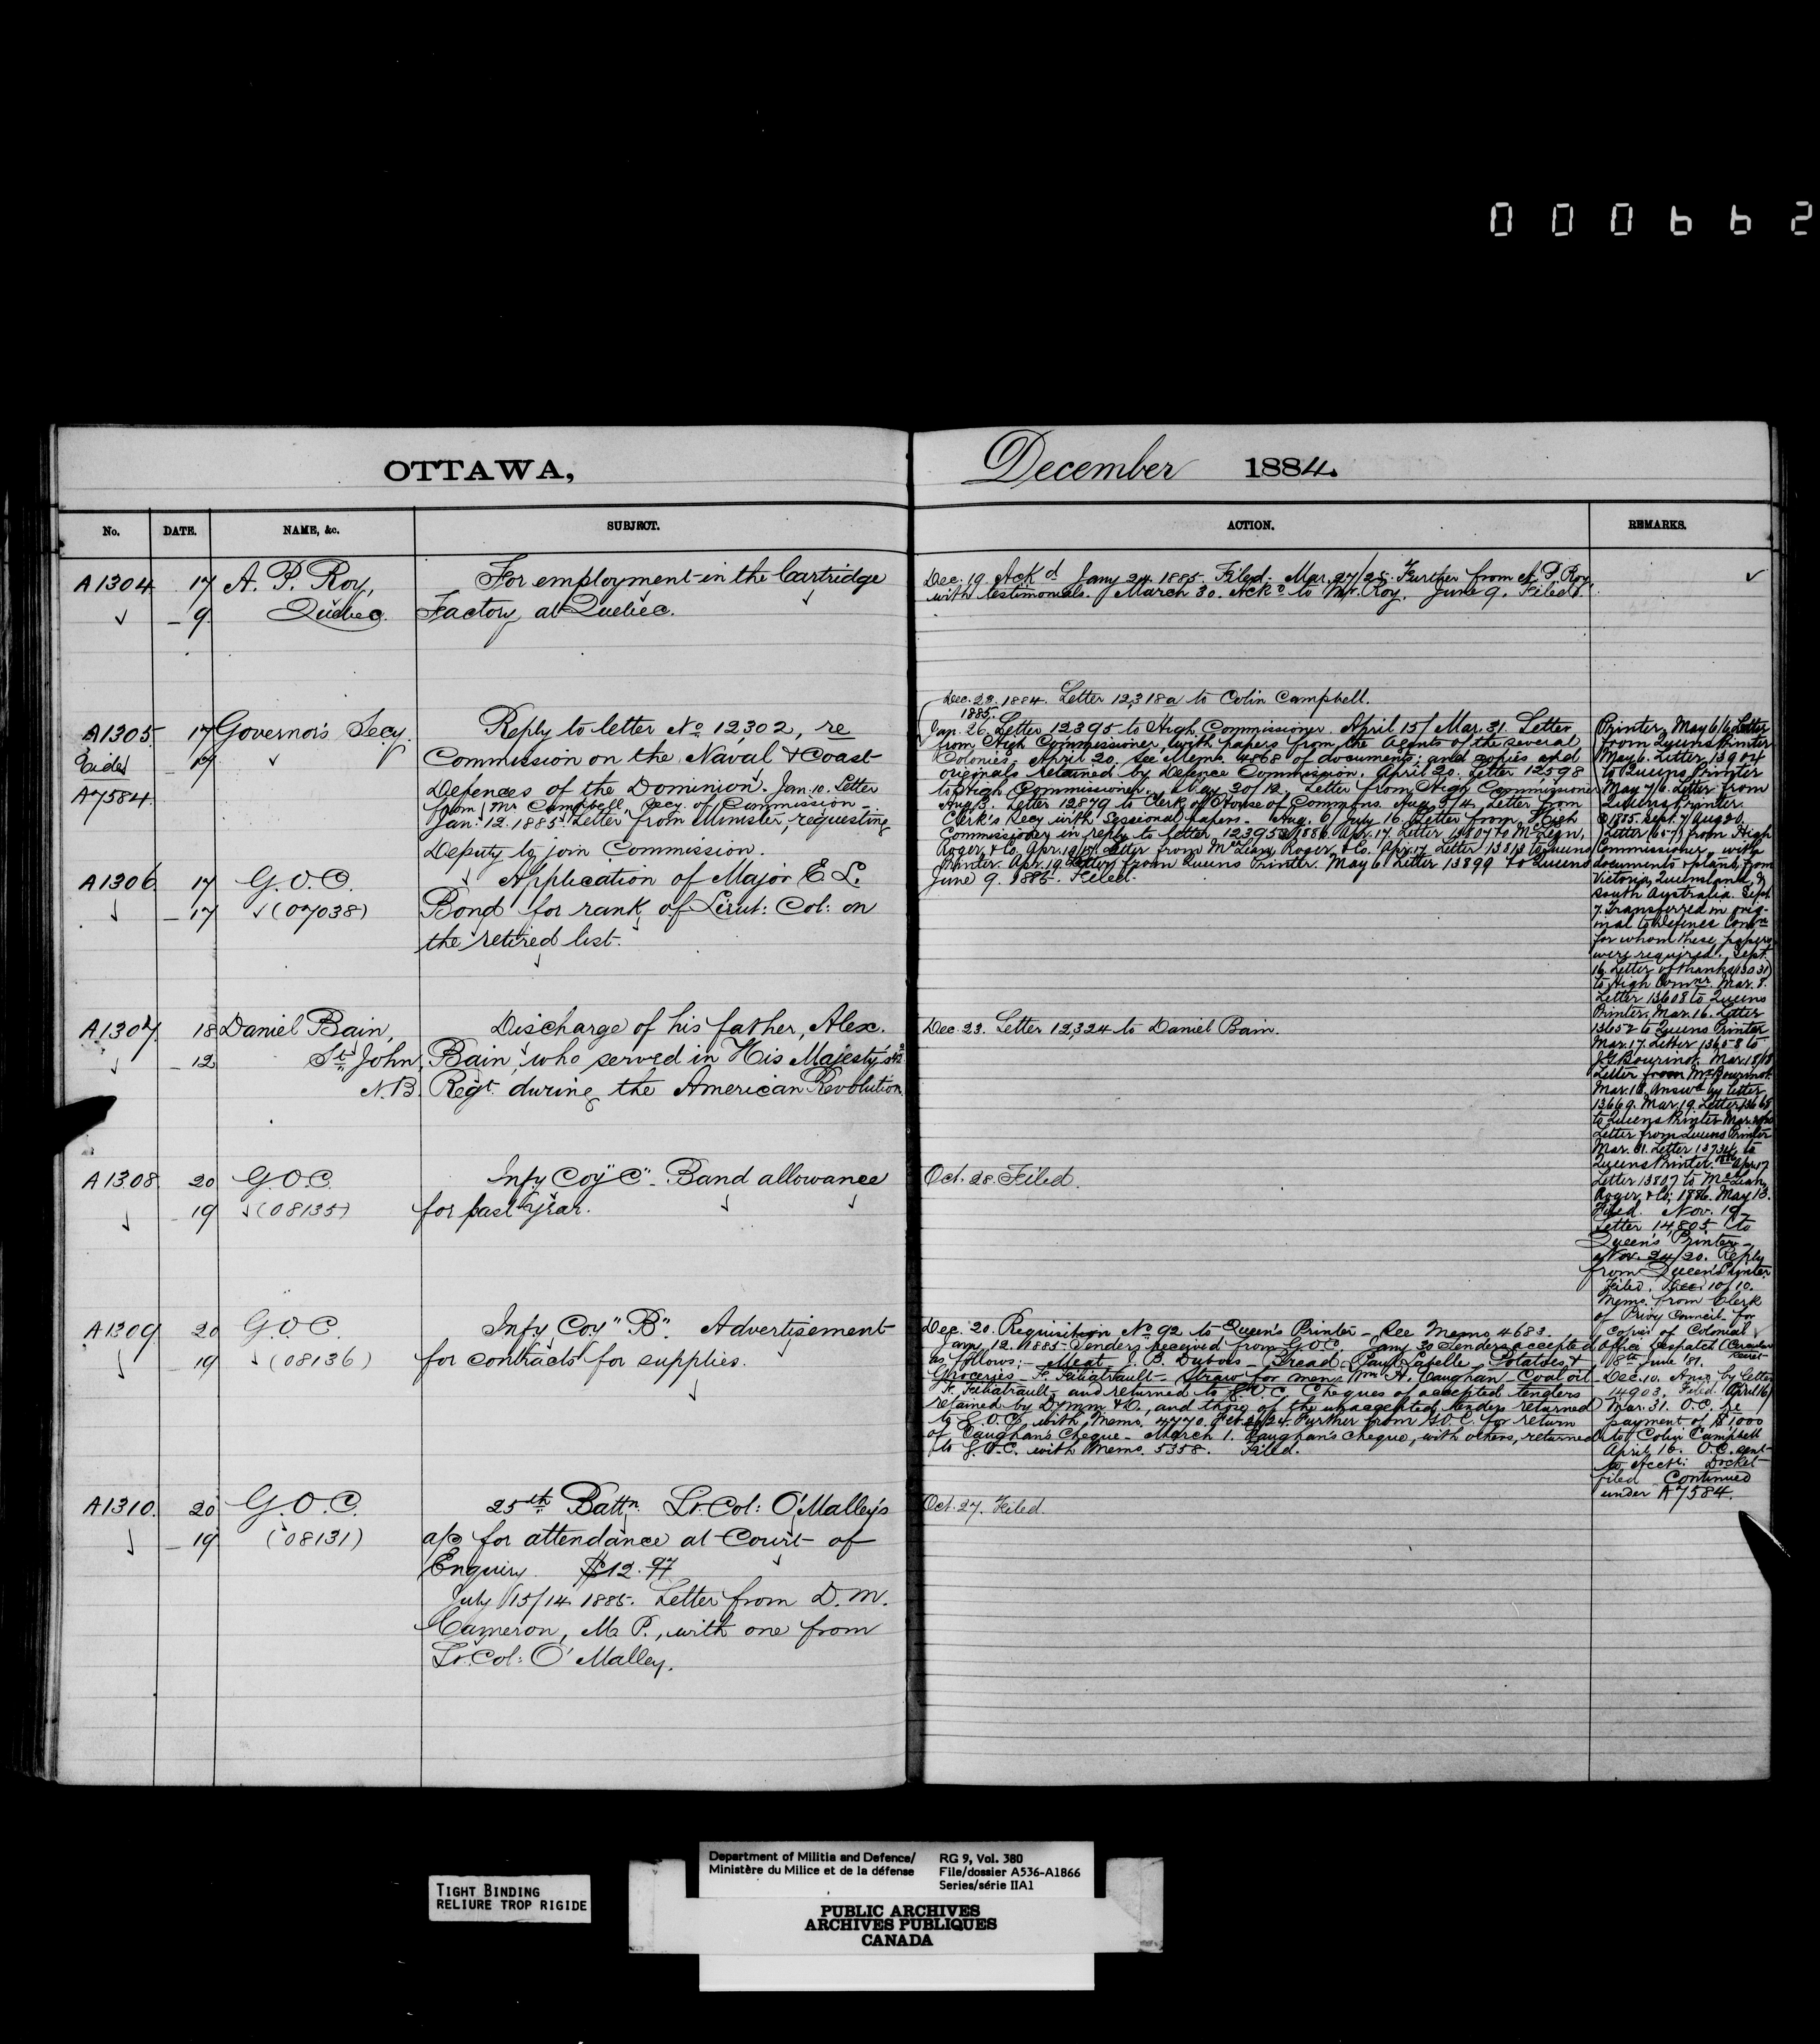 000662
OTTAWA,
No. DATE. NAME, &c. SUBJECT.
A1304 17 A. P. Roy, For employment in the Cartridge
9 Quebec. Factory at Quebec.
A1305 17 Governor's Secy. Reply to letter No 12,302, re
17 Commission on the Naval & Coast
A7584 Defences of the Dominion. Jan. 10. Letter
from Mr Campbell, Secy. of Commission -
Jan. 12. 1885. Letter from Minister, requesting
Deputy to join Commission.
A1306 17 G.O.C. Application of Major E. L.
17 (07038) Bond for rank of Lieut: Col: on
the retired list.
A1307 18 Daniel Bain, Discharge of his father, Alex.
12 St. John, Bain, who served in His Majesty's
N.B. Regt. during the American Revolution.
A1308 20 G.O.C. Infy Coy "C" - Band allowance
19 (08135) for past year.
A1309 20 G.O.C. Infy Coy "B". Advertisement
19 (08136) for contracts for supplies.
A1310 20 G.O.C. 25th Battn. Lt. Col: O'Malley's
19 (08131) a/c for attendance at Court of
Enquiry. $12.97
July 15/14 1885. Letter from D. M.
Cameron, M.P., with one from
Lt. Col: O'Malley.
December 1884.
ACTION. REMARKS.
Dec. 19. Ackd Jany 24 1885. Filed. Mar. 27/25. Further from A. P. Roy,
with testimonials. March 30. Ackd to Mr. Roy. June 9. Filed.
Dec. 23. 1884. Letter 12,318a to Colin Campbell.
1885.
Jan. 26. Letter 12395 to High Commissioner. April 15/Mar. 31. Letter
from High Commissioner, with papers from the Agents of the several
Colonies. April 20, See Memo. 4868 of documents; and copies and
originals retained by Defence Commission. April 20. Letter 12598
to High Commissioner. May 30/12. Letter from High Commissioner
Aug. 3. Letter 12879 to Clerk of House of Commons. Aug. 5/4. Letter from
Clerk's Secy with Sessional papers. Aug. 6/July 16. Letter from High
Commissioner in reply to letter 12395. 1886. Apr. 17. Letter 13807 to McLean,
Roger & Co. Apr. 19/17. Letter from McLean, Roger & Co. Apr. 17. Letter 13813 to Queens
Printer. Apr. 19. Letter from Queens Printer. May 6. Letter 13899 to Queens
June 9. 1885. Filed.
Dec. 23. Letter 12,324 to Daniel Bain.
Oct. 28. Filed.
Dec. 20. Requisition No 92 to Queen's Printer - See Memo 4683.
Jany 12. 1885. Tenders received from G.O.C. Jany 30 Tenders accepted
as follows: - Meat - J. B. Dubois - Bread - Paul Labelle - Potatoes, &
Groceries - F. Filiatrault - Straw for men: Wm. A. Vaughan - Coal oil -
F. Filiatrault - and returned to G.O.C. Cheques of accepted tenders
retained by D/mm & D., and those of the unaccepted tenders returned
to G.O.C. with Memo. 4770. Feb. 24. Further from G.O.C. for return
of Vaughan's Cheque - March 1. Vaughan's cheque, with others, returned
to G.O.C. with Memo. 5358. Filed.
Oct. 27. Filed.
Printer. May 6/6. Letter
from Queens Printer
May 6. Letter 13904
to Queens Printer
May 7/6. Letter from
Queens Printer.
1885. Sept. 7/Aug 20.
Letter from High
Commissioner, with
documents & plans from
Victoria, Queensland, &
South Australia. Sept.
7. Transferred in orig-
inal to Defence Comn
for whom these papers
were required. Sept.
16. Letter of thanks (13031)
to High Comnr. Mar. 8.
Letter 13608 to Queens
Printer. Mar. 16. Letter
13652 to Queens Printer
Mar. 17. Letter 13658 to
J.G. Bourinot. Mar. 18/18
Letter from Mr Bourinot
Mar. 18. Answd by letter
13669. Mar. 19. Letter 13668
to Queens Printer. Mar.
Letter from Queens Printer
Mar. 31. Letter 13734 to
Queens Printer. Apr. 17
Letter 13807 to McLean,
Roger & Co. 1886. May 13.
Filed. Nov. 19.
Letter 14,805 to
Queen's Printer -
Nov. 24/20. Reply
from Queen's Printer
Filed. Dec. 10/10.
Memo. from Clerk
of Privy Council for
Copies of Colonial
Office Despatch (Circular
Secret
18th June '81.
Dec. 10. Answ. by Letter
14903. Filed. April 16/
Mar. 31. O.C. re
payment of $1000
to Colin Campbell
April 16. O.C. sent
to Acctt: Docket
filed Continued
under A7584.
TIGHT BINDING
RELIURE TROP RIGIDE
Department of Militia and Defence/
Ministère du Milice et de la défense
RG 9, Vol. 380
File/dossier A536-A1866
Series/série IIA1
PUBLIC ARCHIVES
ARCHIVES PUBLIQUES
CANADA